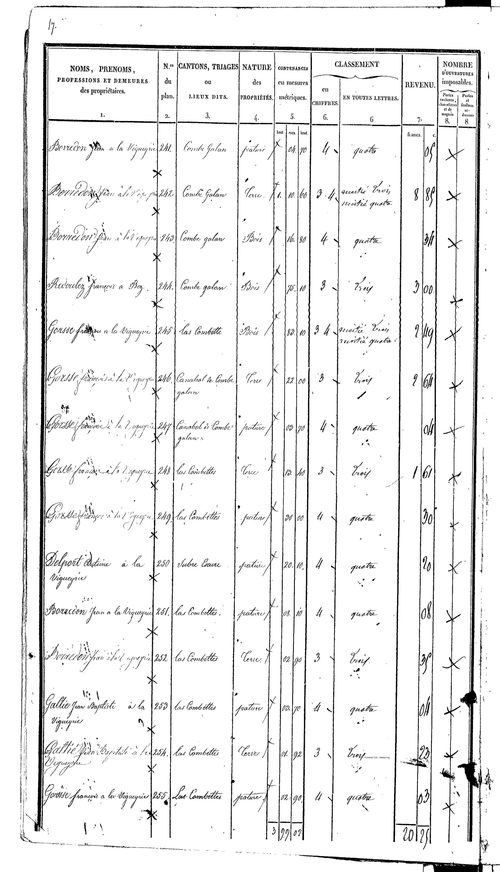 17.
NOMS, PRENOMS, PROFESSIONS ET DEMEURES des propriétaires. | N.os du plan. | CANTONS, TRIAGES ou LIEUX DITS. | NATURE des PROPRIÉTÉS. | CONTENANCES en mesures métriques. | CLASSEMENT en CHIFFRES. | EN TOUTES LETTRES. | REVENU. | NOMBRE D'OUVERTURES imposables.
1. | 2. | 3. | 4. | 5. | 6. | 6 | 7. | 8. | 8.
Borredon Jean a la Vigueyrie 241. Combe Galan pature 04 70 4 quatre 05
Borredon Jean à la 242 Combe Galan Terre 1. 10 60 3 4 moitié trois moitié quatre 8 85
Borredon Jean à la 243 Combe galan Bois 16 80 4 quatre 34
françois a 244. Combe galan Bois 75 10 3 trois 3 00
Gorsse françois a la Vigueyrie 245 las Combette Bois 82 10 3 4 moitié trois moitié quatre 2 49
Gorsse françois à la 246 Canabal de Combe galan Terre 22 00 3 trois 2 64
Gorsse françois à la 247 Canabal de Combe galan pature 03 70 4 quatre 04
Gorsse françois à la 248 las Combettes Terre 13 40 3 trois 1 61
Gorsse françois à la 249 las Combettes pature 30 00 4 quatre 30
Delport Antoine à la Vigueyrie 250 pature 20 10 4 quatre 20
Borredon Jean a la Vigueyrie 251. las Combettes. pature 08 10 4 quatre 08
Borredon Jean à la 252. las Combettes Terre 02 90 3 trois 35
Gallié Jean Baptiste à la Vigueyrie 253 las Combettes pature 03 70 4 quatre 04
Gallié Jean Baptiste à la Vigueyrie 254. las Combettes Terre 01 92 3 trois 23
Gorsse françois a la Vigueyrie 255. Las Combettes pature 02 90 4 quatre 03
3 99 02 20 25